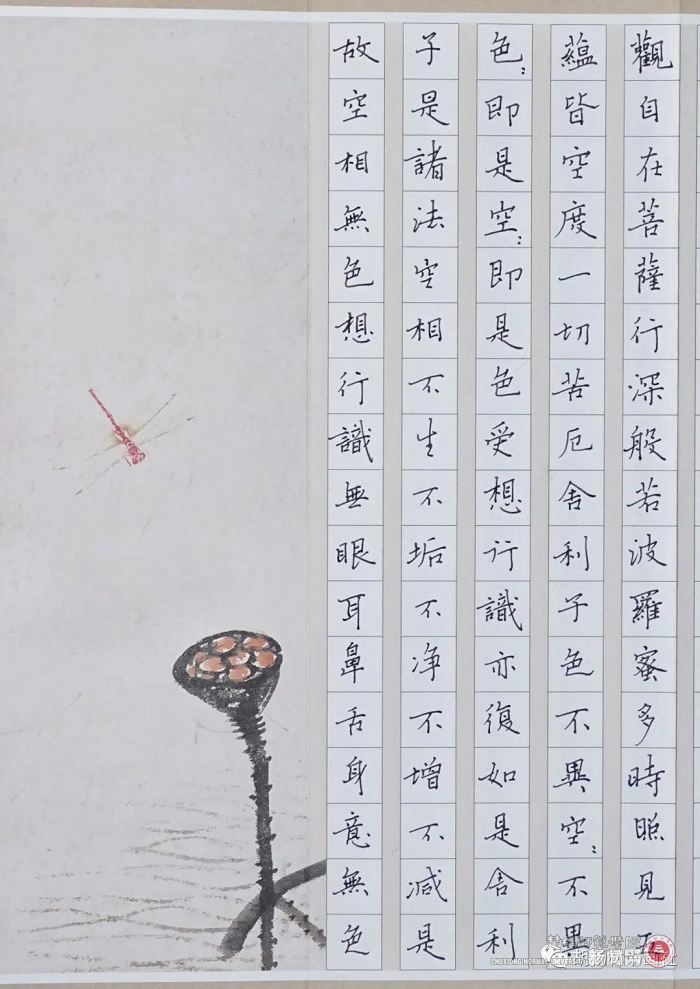 觀自在菩薩行深般若波羅蜜多時照見五
蘊皆空度一切苦厄舍利子色不異空〻不異
色〻即是空〻即是色受想行識亦復如是舍利
子是諸法空相不生不垢不净不增不减是
故空相無色想行識無眼耳鼻舌身意無色
CHUXIONG NORMAL UNIVERSITY